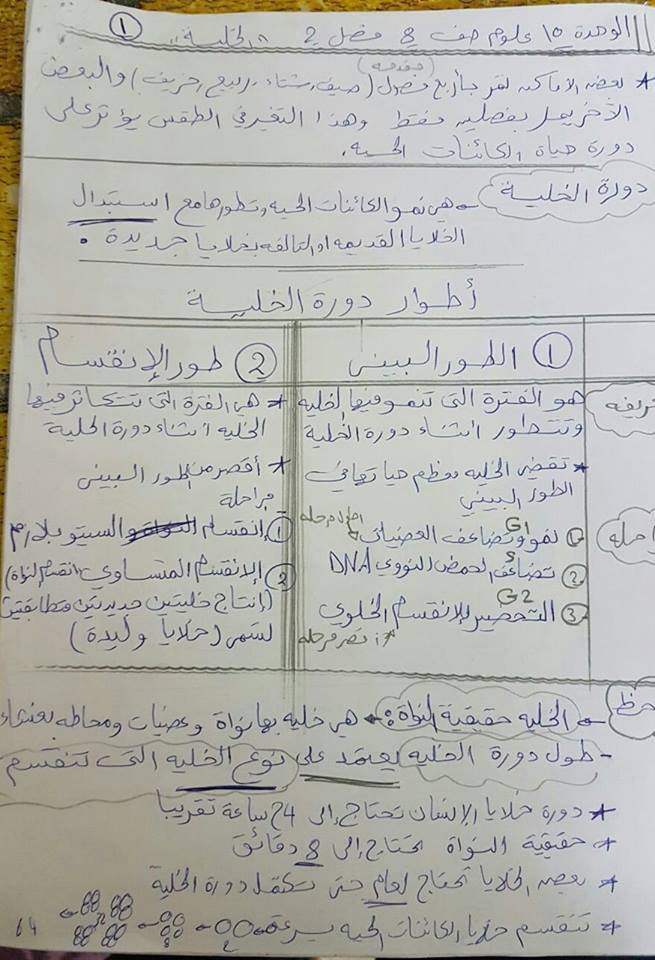 الوحدة 15 علوم صف 8 فصل 2 "الخلية" ①
* بعض الأماكن تمر بأربع فصول (صيف، شتاء، ربيع، خريف) والبعض
(مقدمه)
الآخر يمر بفصلين فقط وهذا التغير في الطقس يؤثر على
دورة حياة الكائنات الحيه.
دورة الخلية ← هي نمو الكائنات الحيه وتطورها مع استبدال
الخلايا القديمه او التالفه بخلايا جديدة.
أطوار دورة الخلية
① الطور البيني
② طور الإنقسام
هو الفترة التي تنمو فيها الخليه
وتتطور أثناء دورة الخلية
* هي الفترة التي تتكاثر فيها
الخليه أثناء دورة الخلية
* تقضي الخليه معظم حياتها في
الطور البيني
* أقصر من الطور البيني
مراحلة
① نمو وتضاعف العضيات G1
② تضاعف الحمض النووي DNA S
③ التحضير للإنقسام الخلوي G2
أطول مرحله
أقصر مرحله
① إنقسام السيتوبلازم
② الإنقسام المتساوي (انقسام النواة)
(إنتاج خليتين جديدتين متطابقتين
تسمى (خلايا وليدة)
← الخليه حقيقية النواة: هي خليه بها نواة وعضيات ومحاطه بغشاء
- طول دورة الخليه يعتمد على نوع الخليه التي تنقسم
* دورة خلايا الإنسان تحتاج إلى 24 ساعة تقريبا
* حقيقية النواة تحتاج إلى 8 دقائق
* بعض الخلايا تحتاج لعام حتى تكتمل دورة الخلية
* تنقسم خلايا الكائنات الحيه بسرعة
2 8 64